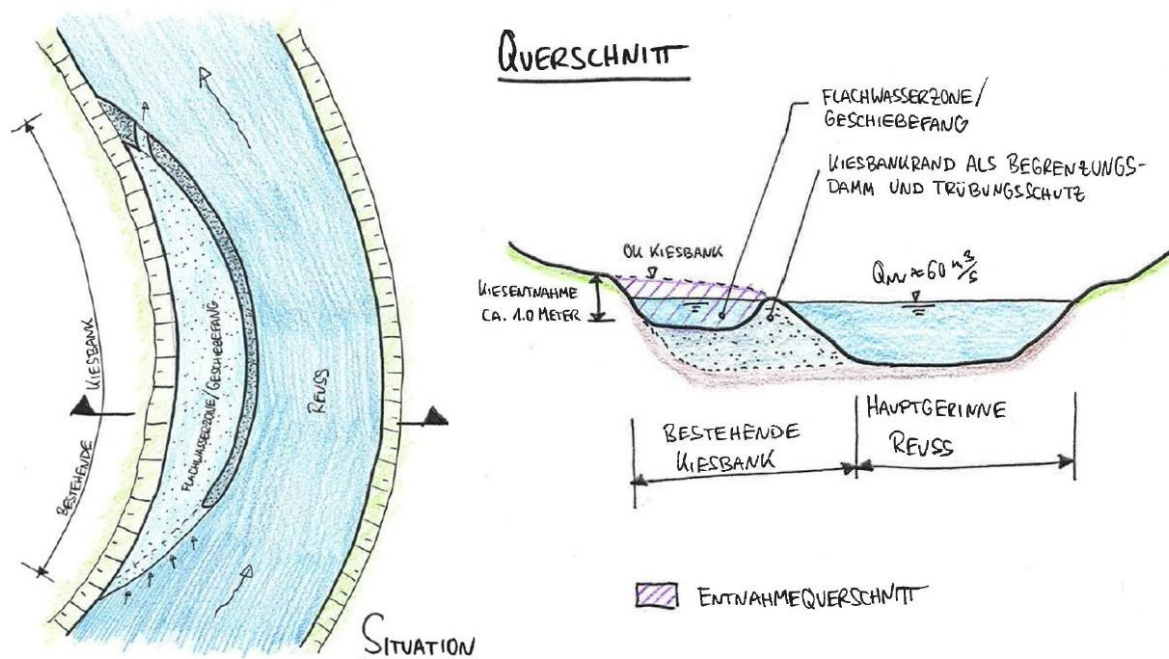 BESTEHENDE KIESBANK
FLACHWASSERZONE/GESCHIEBEFANG
REUSS
SITUATION
QUERSCHNITT
FLACHWASSERZONE/
GESCHIEBEFANG
KIESBANKRAND ALS BEGRENZUNGS-
DAMM UND TRÜBUNGSSCHUTZ
OK KIESBANK
KIESENTNAHME
CA. 1.0 METER
QNW ≈ 60 m³/s
BESTEHENDE
KIESBANK
HAUPTGERINNE
REUSS
ENTNAHMEQUERSCHNITT